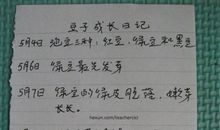 豆子成长日记
5月4日 泡豆三种:红豆、绿豆和黑豆
5月6日 绿豆最先发芽
5月7日 绿豆的绿皮脱落,嫩芽
长长。
hexun.com/teacher(x)